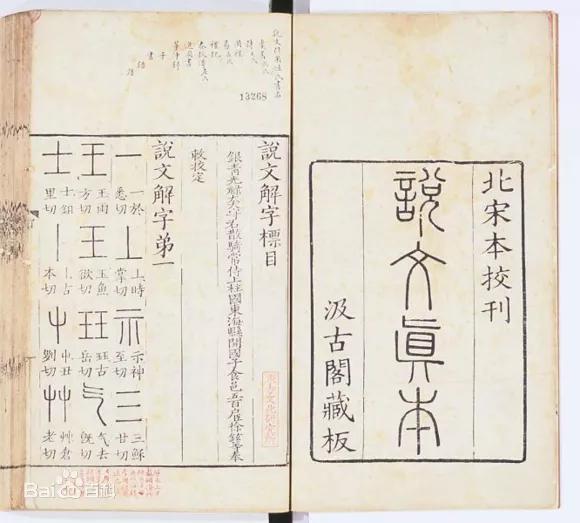 北宋本挍刊
說文眞本
汲古閣藏板
13268
說文解字標目
銀青光祿大夫守右散騎常侍上柱國東海縣開國子食邑五百戶臣徐鉉等奉
敕挍定
說文解字弟一
一 一於悉切 丄 上時掌切 示 示神至切 三 三穌甘切
王 王雨方切 玉 玉魚欲切 玨 玨古岳切 气 气去旣切
士 士鉏里切 丨 丨古本切 屮 屮丑劉切 艸 艸倉老切
Bai百科